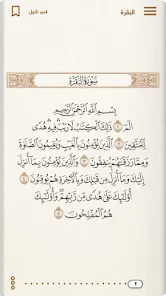 الجزء الأول
البقرة
سُورَةُ البَقَرَةِ
بِسْمِ اللَّهِ الرَّحْمَٰنِ الرَّحِيمِ
الٓمٓ ١ ذَٰلِكَ الْكِتَٰبُ لَا رَيْبَ ۛ فِيهِ ۛ هُدًى
لِّلْمُتَّقِينَ ٢ الَّذِينَ يُؤْمِنُونَ بِالْغَيْبِ وَيُقِيمُونَ الصَّلَوٰةَ
وَمِمَّا رَزَقْنَٰهُمْ يُنفِقُونَ ٣ وَالَّذِينَ يُؤْمِنُونَ بِمَآ أُنزِلَ
إِلَيْكَ وَمَآ أُنزِلَ مِن قَبْلِكَ وَبِالْءَاخِرَةِ هُمْ يُوقِنُونَ ٤
أُو۟لَٰٓئِكَ عَلَىٰ هُدًى مِّن رَّبِّهِمْ ۖ وَأُو۟لَٰٓئِكَ
هُمُ الْمُفْلِحُونَ ٥
٢